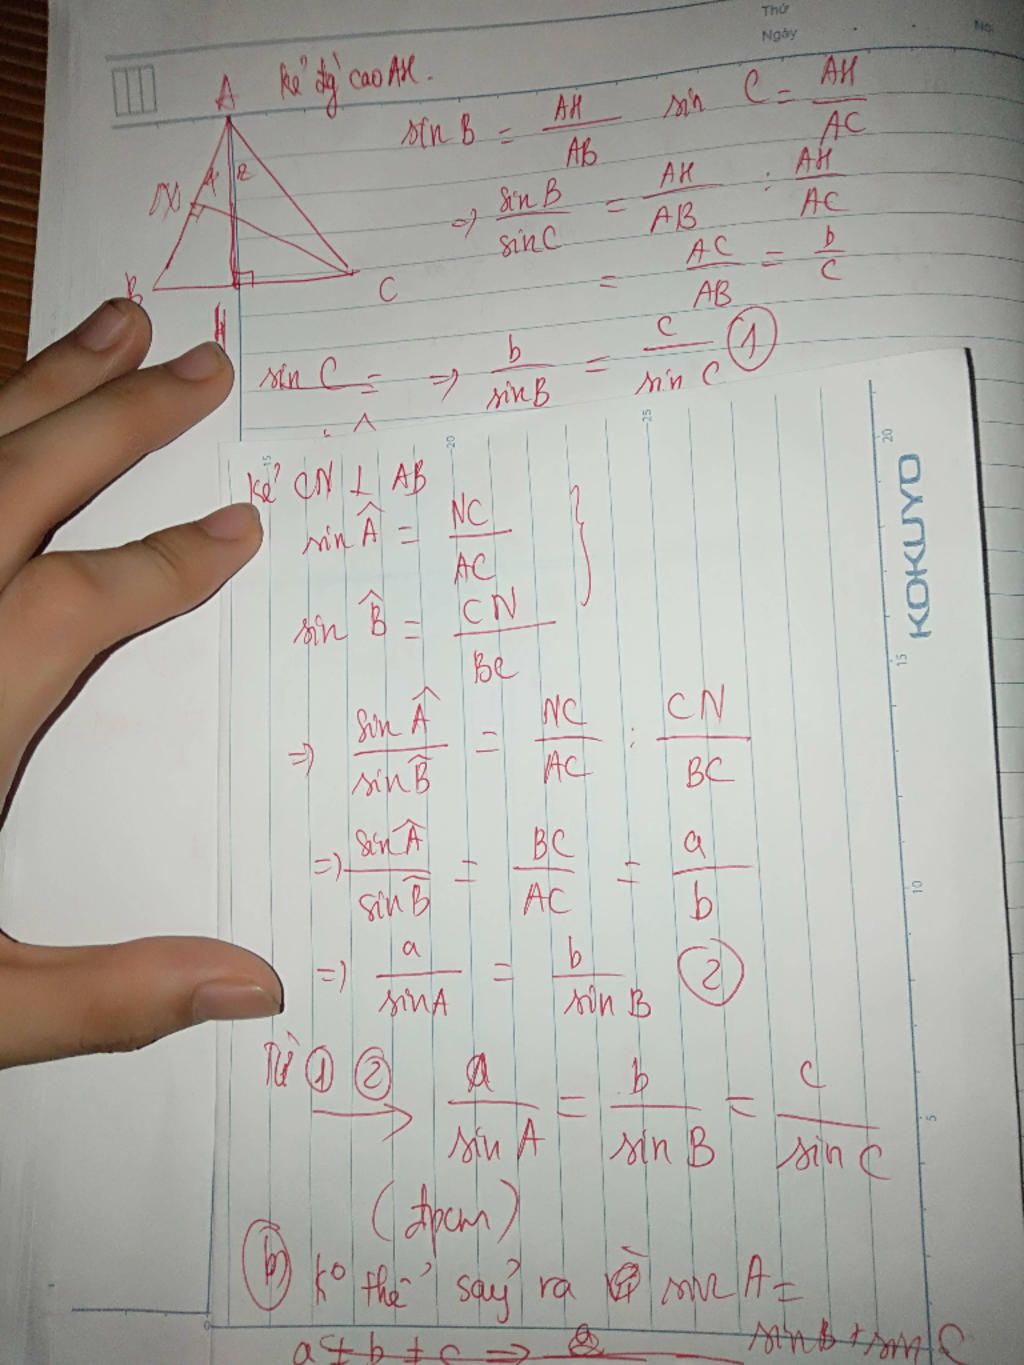 Thứ
Ngày
No.
A
Kẻ đg cao AH.
B
C
H
sin B = AH/AB sin C = AH/AC
=> sin B/sin C = AH/AB : AH/AC
= AC/AB = b/c
sin C = => b/sin B = c/sin C ①
Kẻ CN ⊥ AB
sin Â = NC/AC
sin B̂ = CN/BC
=> sin Â/sin B̂ = NC/AC : CN/BC
=> sin Â/sin B̂ = BC/AC = a/b
=> a/sin A = b/sin B ②
Từ ① ② → a/sin A = b/sin B = c/sin C
(đpcm)
ⓑ Ko thể sảy ra sin A =
sin B + sin C
a ≠ b ≠ c =>
15 20 25
KOKUYO
20
15
10
5
0